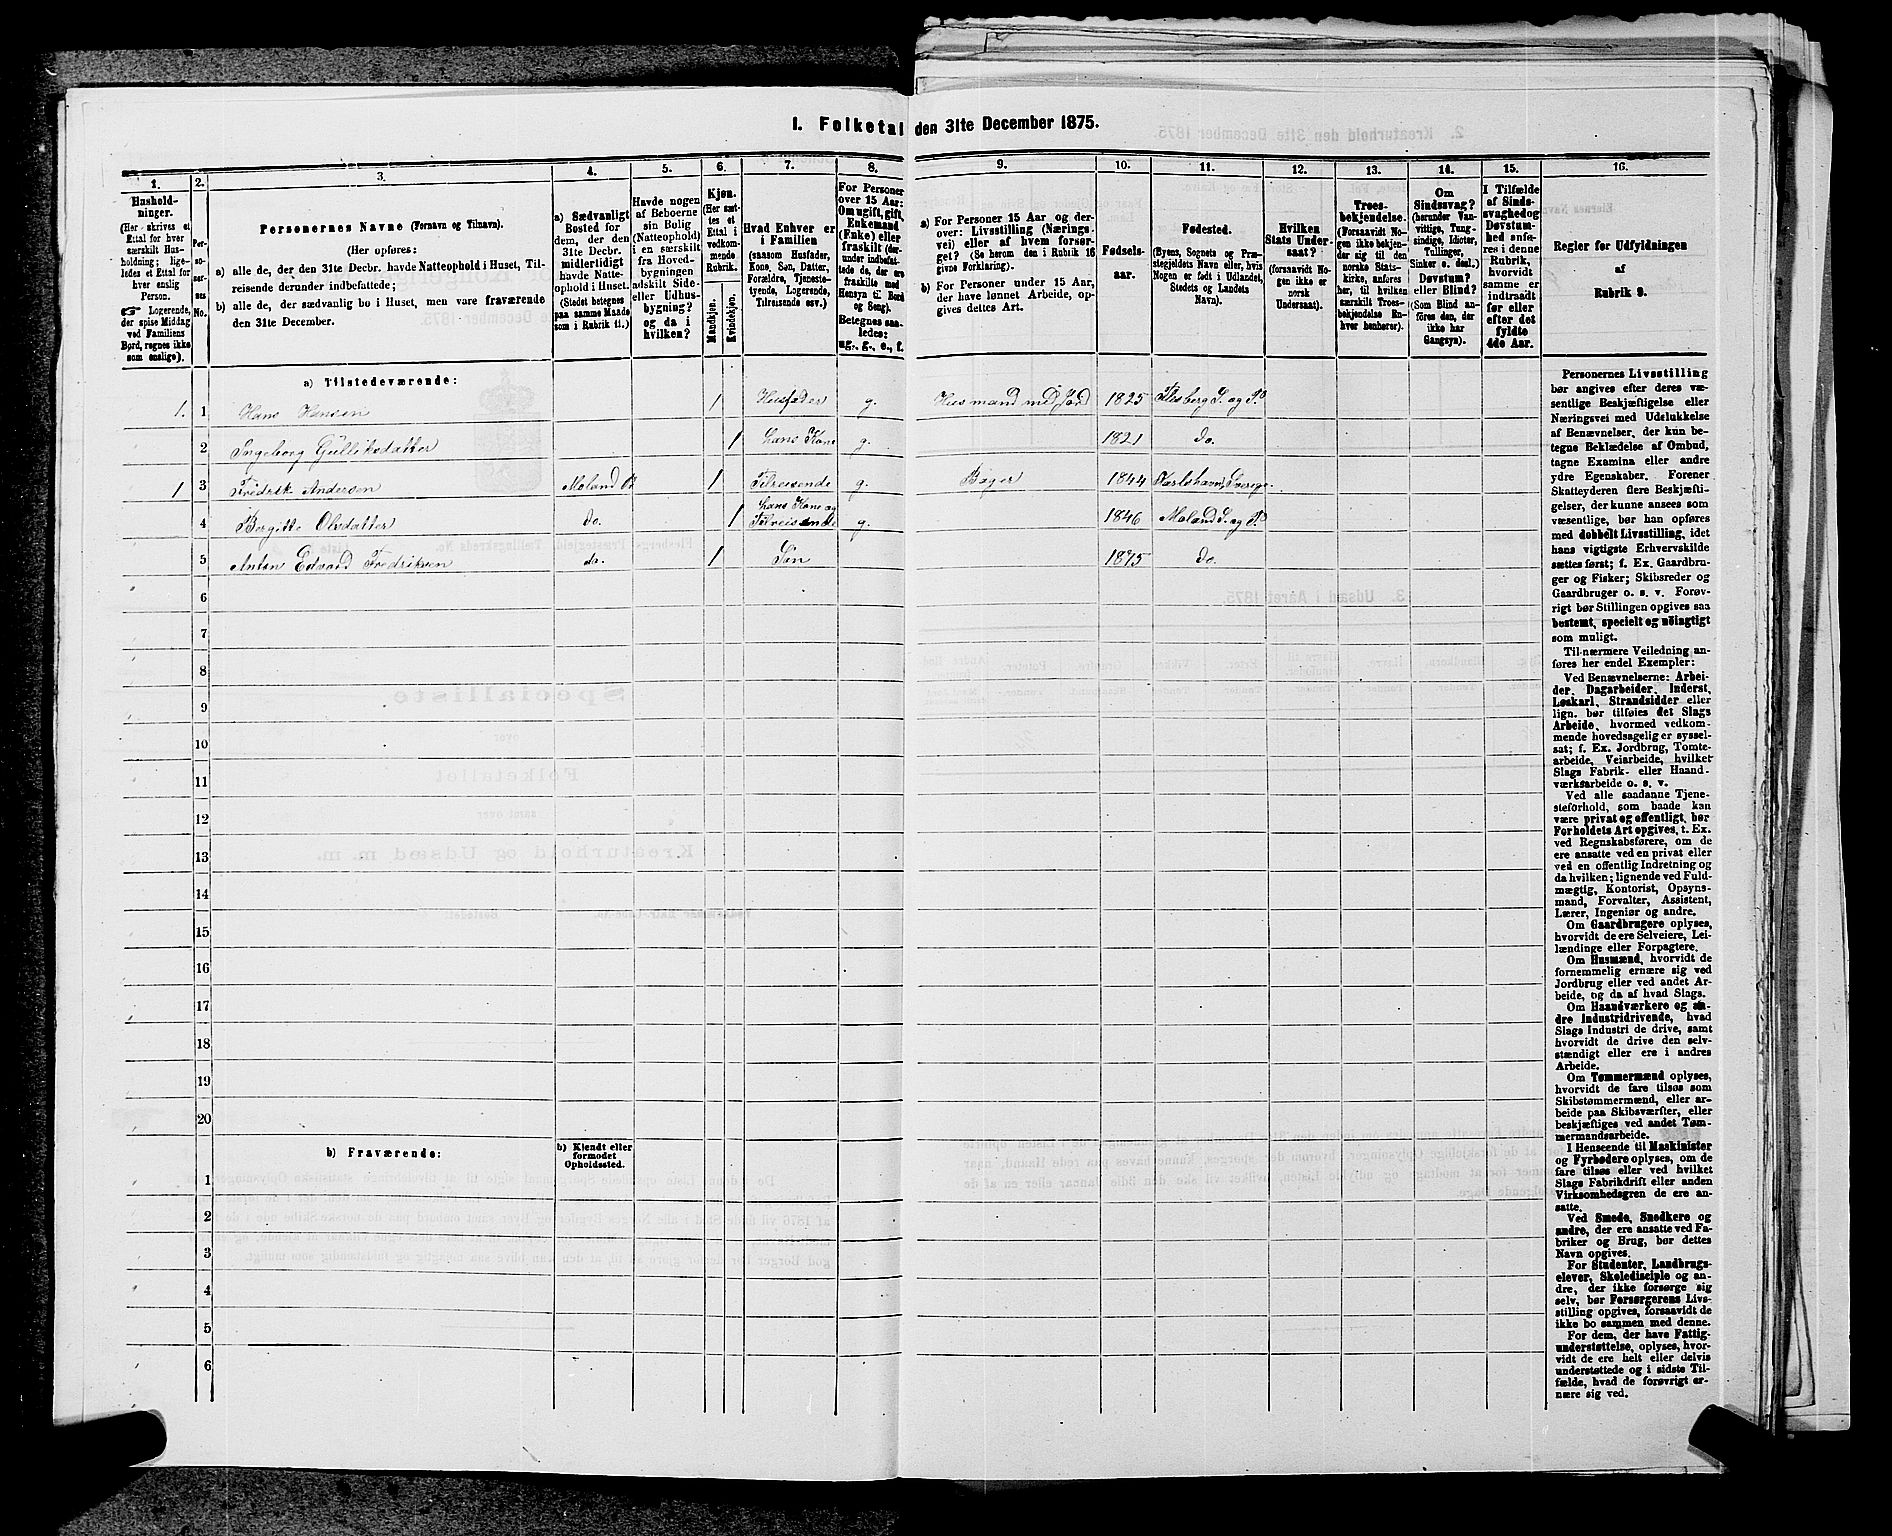 I. Folketal den 31te December 1875.
1. 2. 3. 4. 5. 6. 7. 8. 9. 10. 11. 12. 13. 14. 15. 16.
Hushold-
ninger.
(Her skrives et
Ettal for hver
særskilt Hus-
holdning; lige-
ledes et Ettal for
hver enslig
Person.
☞ Logerende,
der spise Middag
ved Familiens
Bord, regnes ikke
som enslige).
Per-
so-
ner-
nes
No.
Personernes Navne (Fornavn og Tilnavn).
(Her opføres:
a) alle de, der den 31te Decbr. havde Natteophold i Huset, Til-
reisende derunder indbefattede;
b) alle de, der sædvanlig bo i Huset, men vare fraværende
den 31te December.
a) Sædvanligt
Bosted for
dem, der den
31te Decbr.
midlertidigt
havde Natte-
ophold i Huset.
(Stedet betegnes
paa samme Maade
som i Rubrik 11.)
Havde nogen
af Beboerne
sin Bolig
(Natteophold)
i en særskilt
fra Hoved-
bygningen
adskilt Side-
eller Udhus-
bygning?
og da i
hvilken?
Kjøn.
(Her sæt-
tes et
Ettal i
vedkom-
mende
Rubrik.
Mandkjøn.
Kvindekjøn.
Hvad Enhver er
i Familien
(saasom Husfader,
Kone, Søn, Datter,
Forældre, Tjeneste-
tyende, Logerende,
Tilreisende osv.)
For Personer
over 15 Aar:
Om ugift, gift,
Enkemand
(Enke) eller
fraskilt (der-
under indbefat-
tede de, der ere
fraskilte med
Hensyn til Bord
og Seng).
Betegnes saa-
ledes:
ug., g., e., f.
a) For Personer 15 Aar og der-
over: Livsstilling (Nærings-
vei) eller af hvem forsør-
get? (Se herom den i Rubrik 16
givne Forklaring).
b) For Personer under 15 Aar,
der have lønnet Arbeide, op-
gives dettes Art.
Fødsels-
aar.
Fødested.
(Byens, Sognets og Præ-
stegjeldets Navn eller, hvis
Nogen er født i Udlandet,
Stedets og Landets
Navn).
Hvilken
Stats Under-
saat?
(forsaavidt No-
gen ikke er
norsk
Undersaat).
Troes-
bekjendelse.
(Forsaavidt No-
gen ikke bekjen-
der sig til den
norske Stats-
kirke, anføres
her, til hvilken
særskilt Troes-
bekjendelse En-
hver henhører).
Om
Sindssvag?
(herunder Van-
vittige, Tung-
sindige, Idioter,
Tullinger,
Sinker o. desl.)
Døvstum?
eller Blind?
(Som Blind an-
føres den, der
ikke har
Gangsyn).
I Tilfælde
af Sinds-
svaghed og
Døvstum-
hed anfø-
res i denne
Rubrik,
hvorvidt
samme er
indtraadt
før eller
efter det
fyldte
4de Aar.
Regler for Udfyldningen
af
Rubrik 9.
a) Tilstedeværende:
1. 1 Hans Hansen 1 Husfader g. Husmand med Jord 1825 Flesberg S. og P.
2 Ingeborg Gulliksdatter 1 hans Kone g. 1821 do.
1 3 Fredrik Andersen Moland P 1 Tilreisende g. Bager 1844 Karlshavn, Sverige
4 Bergitte Olsdatter do. 1 hans Kone og Tilreisende g. 1846 Moland S. og P.
5 Anton Edvard Fredriksen do. 1 Søn 1875 do.
6
7
8
9
10
11
12
13
14
15
16
17
18
19
20
b) Fraværende:
b) Kjendt eller
formodet
Opholdssted.
1
2
3
4
5
6
Personernes Livsstilling
bør angives efter deres væ-
sentlige Beskjæftigelse eller
Næringsvei med Udelukkelse
af Benævnelser, der kun be-
tegne Beklædelse af Ombud,
tagne Examina eller andre
ydre Egenskaber. Forener
Skatteyderen flere Beskjæfti-
gelser, der kunne ansees som
væsentlige, bør han opføres
med dobbelt Livsstilling, idet
hans vigtigste Erhvervskilde
sættes først; f. Ex. Gaardbru-
ger og Fisker; Skibsreder og
Gaardbruger o. s. v. Forøv-
rigt bør Stillingen opgives saa
bestemt, specielt og nøiagtigt
som muligt.
Til nærmere Veiledning an-
føres her endel Exempler:
Ved Benævnelserne: Arbei-
der, Dagarbeider, Inderst,
Løskarl, Strandsidder eller
lign. bør tilføies det Slags
Arbeide, hvormed vedkom-
mende hovedsagelig er syssel-
sat; f. Ex. Jordbrug, Tomte-
arbeide, Veiarbeide, hvilket
Slags Fabrik- eller Haand-
værksarbeide o. s. v.
Ved alle saadanne Tjene-
steforhold, som baade kan
være privat og offentligt, bør
Forholdets Art opgives, t. Ex.
ved Regnskabsførere, om de
ere ansatte ved en privat eller
ved en offentlig Indretning og
da hvilken; lignende ved Fuld-
mægtig, Kontorist, Opsyns-
mand, Forvalter, Assistent,
Lærer, Ingeniør og andre.
Om Gaardbrugere oplyses,
hvorvidt de ere Selveiere, Lei-
lændinge eller Forpagtere.
Om Husmænd, hvorvidt de
fornemmelig ernære sig ved
Jordbrug eller ved andet Ar-
beide, og da af hvad Slags.
Om Haandværkere og an-
dre Industridrivende, hvad
Slags Industri de drive, samt
hvorvidt de drive den selv-
stændigt eller ere i andres
Arbeide.
Om Tømmermænd oplyses,
hvorvidt de fare tilsøs som
Skibstømmermænd, eller ar-
beide paa Skibsværfter, eller
beskjæftiges ved andet Tøm-
mermandsarbeide.
I Henseende til Maskinister
og Fyrbødere oplyses, om de
fare tilsøs eller ved hvilket
Slags Fabrikdrift eller anden
Virksomhedsgren de ere an-
satte.
Ved Smede, Snedkere og
andre, der ere ansatte ved Fa-
briker og Brug, bør dettes
Navn opgives.
For Studenter, Landbrugs-
elever, Skoledisciple og an-
dre, der ikke forsørge sig
selv, bør Forsørgerens Livs-
stilling opgives, forsaavidt de
ikke bo sammen med denne.
For dem, der have Fattig-
understøttelse, oplyses, hvor-
vidt de ere helt eller delvis
understøttede og i sidste Til-
fælde, hvad de forøvrigt er-
nære sig ved.